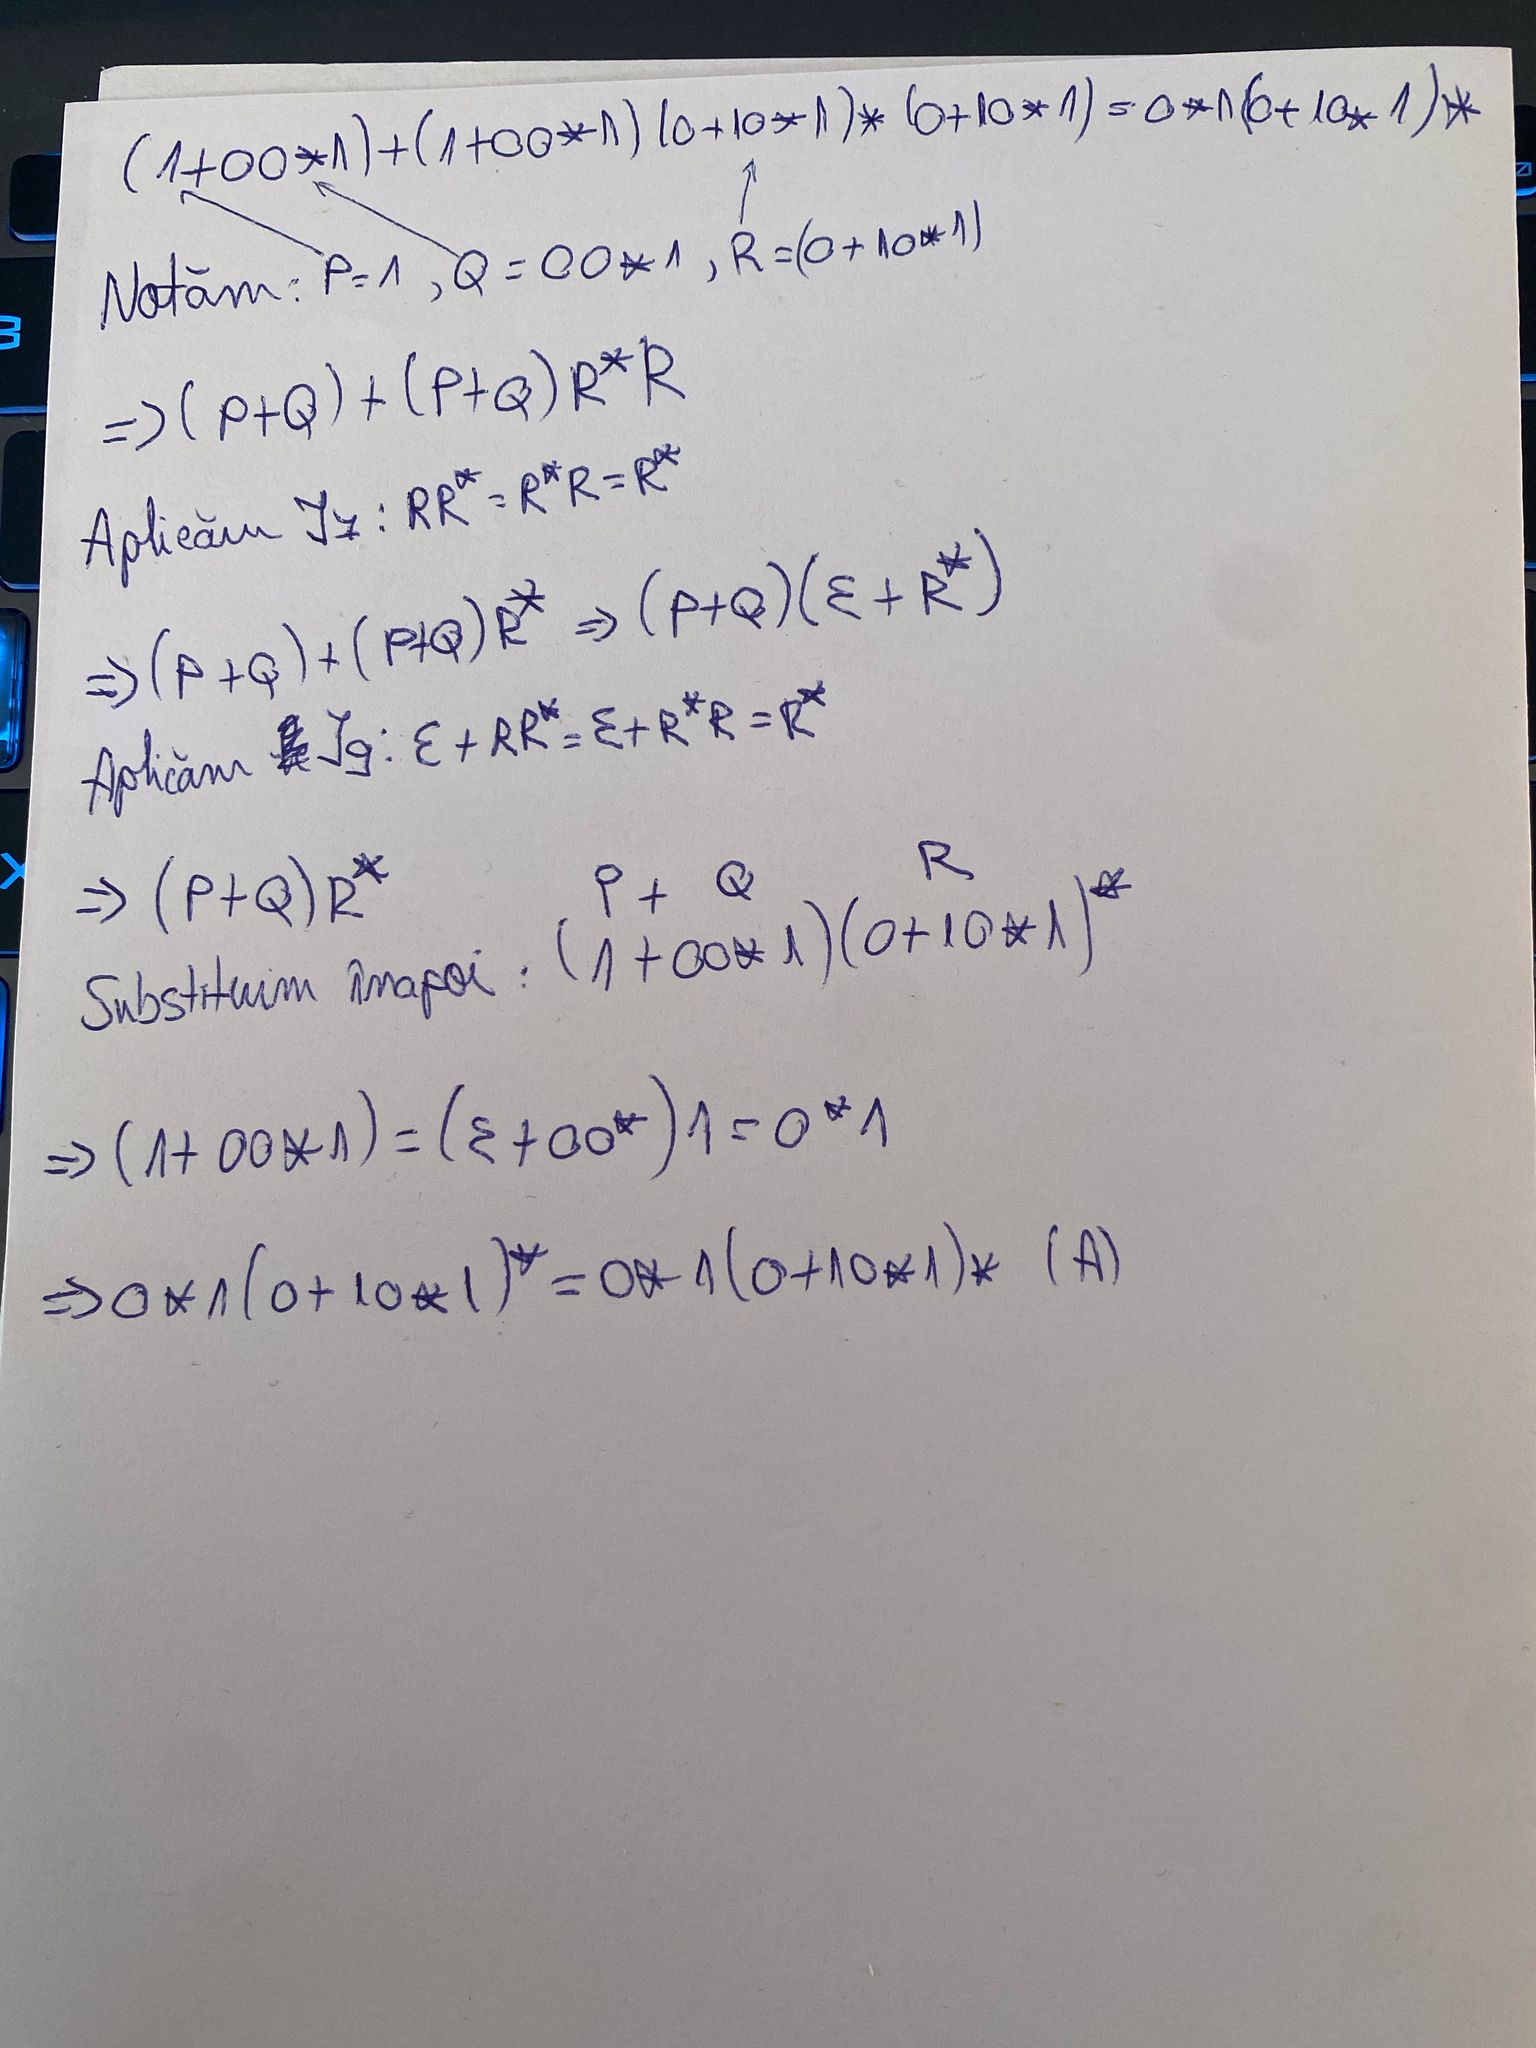 (1+00*1)+(1+00*1)(0+10*1)*(0+10*1)=0*1(0+10*1)*
Notăm: P=1, Q=00*1, R=(0+10*1)
=>(P+Q)+(P+Q)R*R
Aplicăm I7: RR*=R*R=R*
=>(P+Q)+(P+Q)R* => (P+Q)(ε+R*)
Aplicăm I9: ε+RR*=ε+R*R=R*
=> (P+Q)R*
P + Q R
Substituim înapoi: (1+00*1)(0+10*1)*
=>(1+00*1)=(ε+00*)1=0*1
=>0*1(0+10*1)*=0*1(0+10*1)* (A)